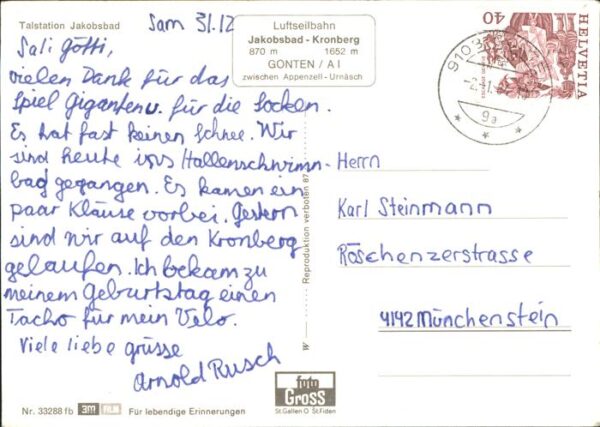 Talstation Jakobsbad
Sam 31.12
Luftseilbahn
Jakobsbad - Kronberg
870 m 1652 m
GONTEN / A I
zwischen Appenzell - Urnäsch
HELVETIA
40
9a
Sali Götti,
vielen Dank für das
Spiel Giganten u. für die Socken.
Es hat fast keinen Schnee. Wir
sind heute ins Hallenschwimm-
bad gegangen. Es kamen ein
paar Kläuse vorbei. Gestern
sind wir auf den Kronberg
gelaufen. Ich bekam zu
meinem Geburtstag einen
Tacho für mein Velo.
Viele liebe grüsse
Arnold Rusch
Herrn
Karl Steinmann
Röschenzerstrasse
4142 Münchenstein
Reproduktion verboten 87
W
foto
GROSS
St.Gallen O St.Fiden
Nr. 33288 fb 3M Für lebendige Erinnerungen